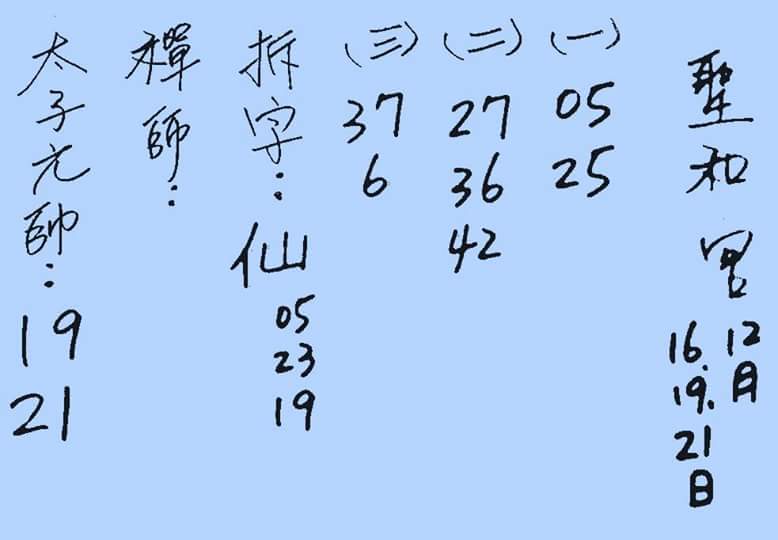 聖和宮
12月
16.19.21日
(一)
05
25
(二)
27
36
42
(三)
37
6
拆字：仙
05
23
19
禪師：
太子元帥：
19
21